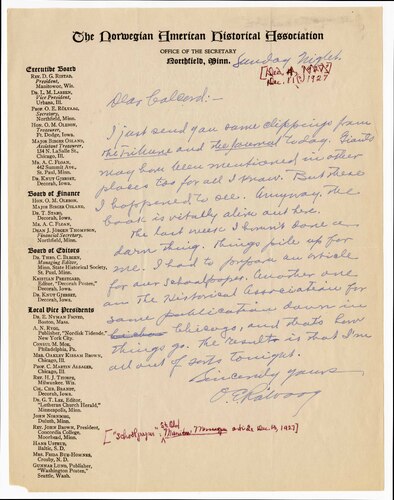 The Norwegian American Historical Association
OFFICE OF THE SECRETARY
Northfield, Minn.
Sunday Night.
1927
Executive Board
REV. D. G. RISTAD,
President,
Manitowoc, Wis.
DR. L. M. LARSEN,
Vice President,
Urbana, Ill.
PROF. O. E. RÖLVAAG,
Secretary,
Northfield, Minn.
HON. O. M. OLESON,
Treasurer,
Ft. Dodge, Iowa.
MAJOR BIRGER OSLAND,
Assistant Treasurer,
134 N. LaSalle St.,
Chicago, Ill.
MR. A. C. FLOAN,
442 Summit Ave.,
St. Paul, Minn.
DR. KNUT GJERSET,
Decorah, Iowa.
Board of Finance
HON. O. M. OLESON,
MAJOR BIRGER OSLAND,
DR. T. STABO,
Decorah, Iowa.
MR. A. C. FLOAN,
DEAN J. JÖRGEN THOMPSON,
Financial Secretary,
Northfield, Minn.
Board of Editors
DR. THEO. C. BLEGEN,
Managing Editor,
Minn. State Historical Society,
St. Paul, Minn.
KRISTIAN PRESTGARD,
Editor, "Decorah Posten,"
Decorah, Iowa.
DR. KNUT GJERSET,
Decorah, Iowa.
Local Vice Presidents
Boston, Mass.
A. N. RYGG,
Publisher, "Nordisk Tidende,"
New York City.
Philadelphia, Pa.
Chicago, Ill.
Chicago, Ill.
REV. H. J. THORPE,
Milwaukee, Wis.
CHR. CHR. BRANDT,
Decorah, Iowa.
DR. G. T. LEE, Editor,
"Lutheran Church Herald,"
Minneapolis, Minn.
Duluth, Minn.
REV. JOHN BROWN, President,
Concordia College,
Moorhead, Minn.
Baltic, S. D.
Crosby, N. D.
GUNNAR LUND, Publisher,
"Washington Posten,"
Seattle, Wash.
Dear Colcord:—
I just send you some clippings from
the Tribune and the Journal today. Giants
may have been mentioned in other
places too for all I know. But these
I happened to see. Anyway, the
book is vitally alive out here.
The last week I haven't done a
darn thing. Things pile up for
me. I had to prepare an article
for our school paper. Another one
on the Historical Association for
some publication down in
Chicago, and that's how
things go. The result is that I'm
all out of sorts tonight.
Sincerely yours
O. E. Rölvaag
["School paper = St Olaf
Manitou Messenger Dec. 13, 1927]